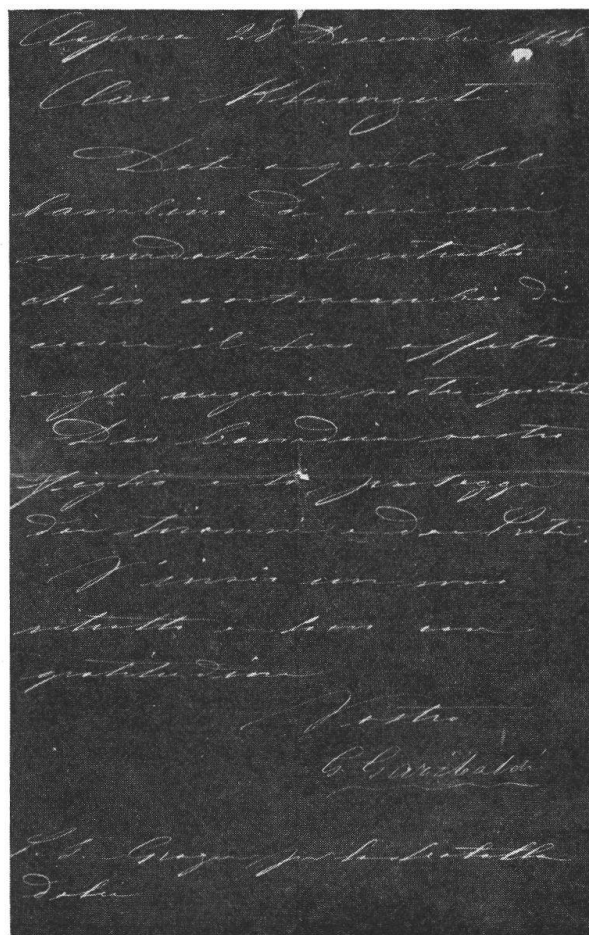 Caprera 28 Dicembre
Caro
Dite a quel bel
bambino di cui mi
mandaste il ritratto
di
il suo affetto
e gli auguri vostri gentili
Dio benedica vostro
figlio e lo protegga
dai tiranni e dai Preti.
V'invio un mio
ritratto e sono con
gratitudine
Vostro
G. Garibaldi
P. S. Grazie per la scatola
dolci